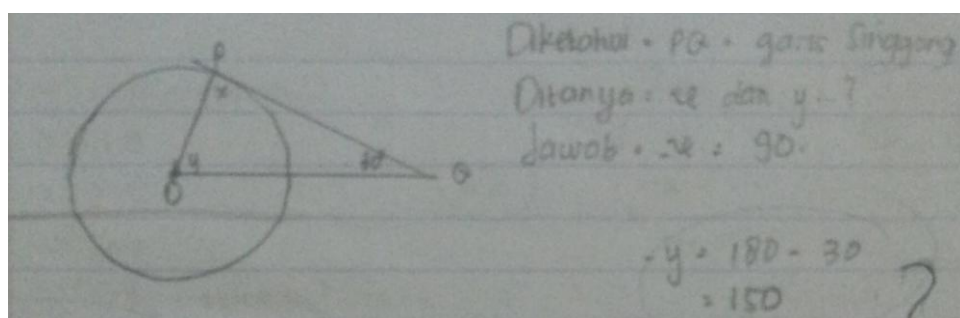 P
x
y
30°
O
Q
Diketahui = PQ = garis Singgung
Ditanya = x dan y...?
Jawab = x = 90.
- y = 180 - 30
= 150
?